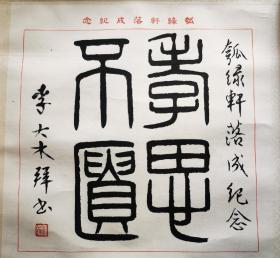 瓠緣軒落成紀念
瓠緣軒落成紀念
孝思
不匱
李大木拜书